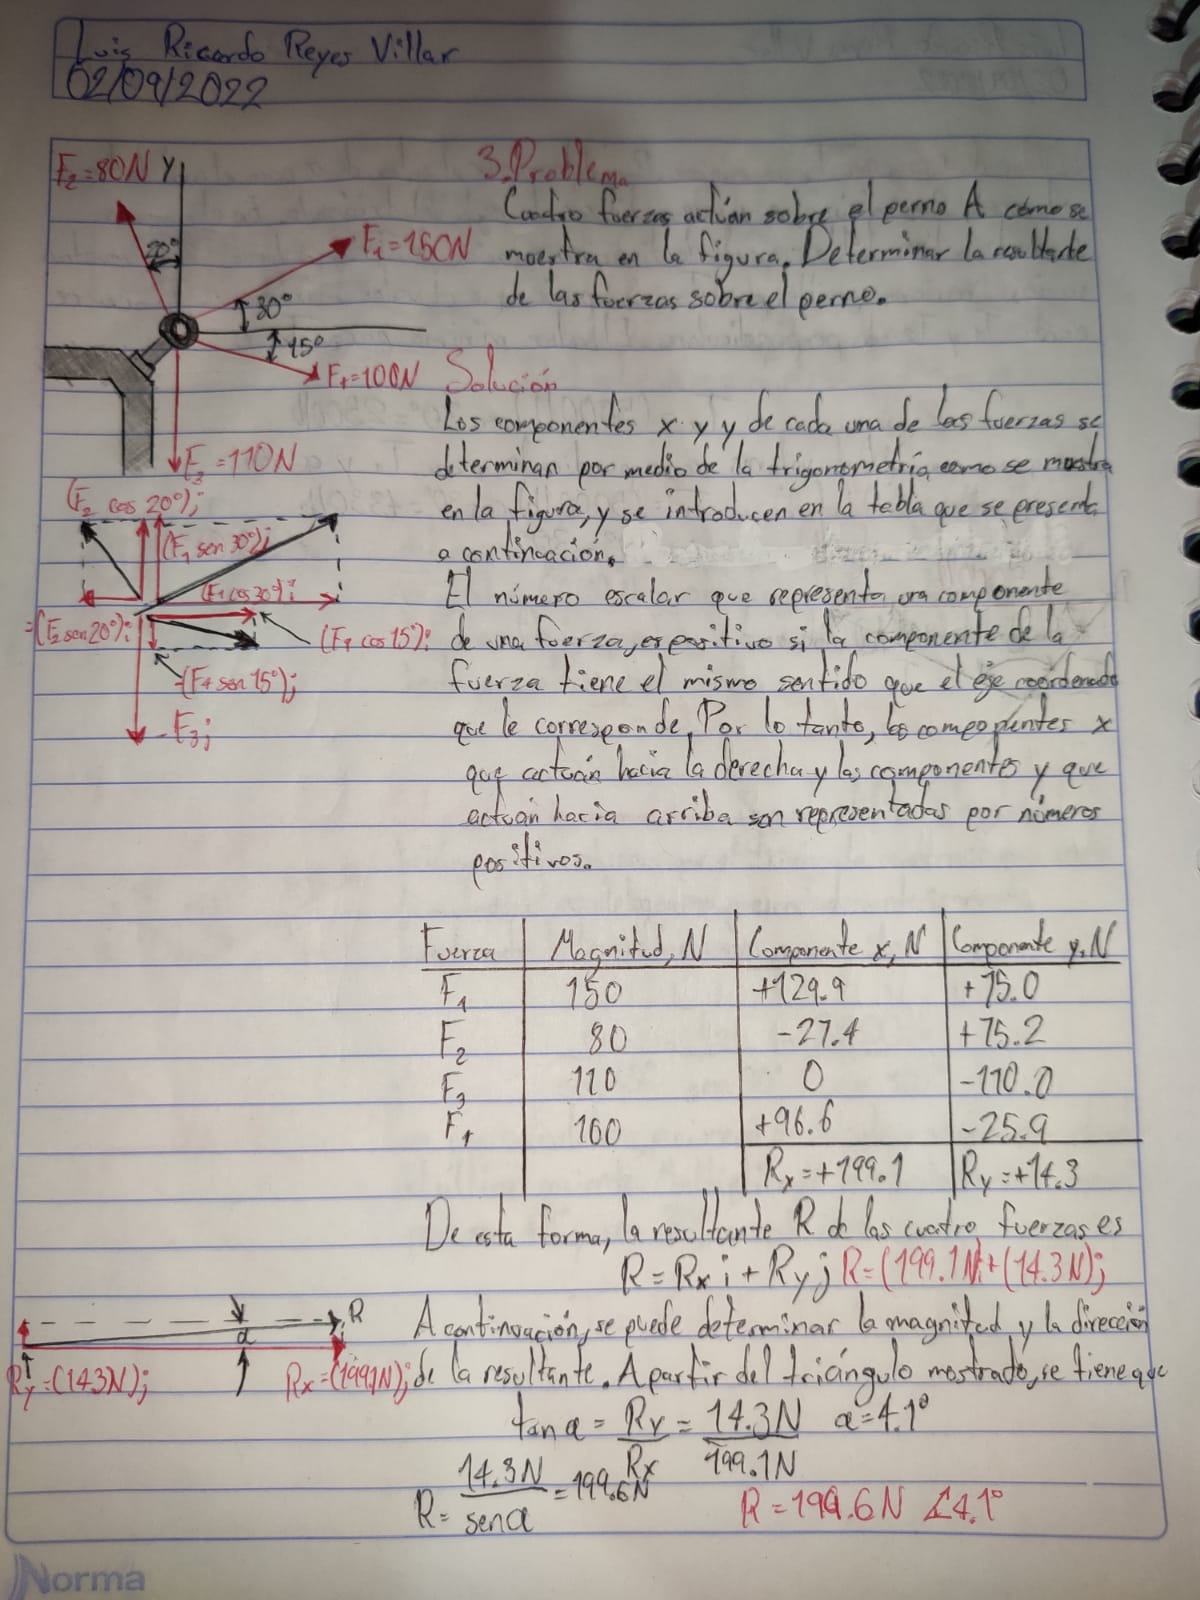 Luis Ricardo Reyes Villar
02/09/2022
3. Problema
Cuatro fuerzas actúan sobre el perno A como se
muestra en la figura. Determinar la resultante
de las fuerzas sobre el perno.
F₂=80N Y
20°
F₁=150N
30°
15°
F₄=100N
F₃=110N
Solución
Los componentes x y y de cada una de las fuerzas se
determinan por medio de la trigonometría, como se muestra
en la figura, y se introducen en la tabla que se presenta
a continuación.
El número escalar que representa una componente
de una fuerza, es positivo si la componente de la
fuerza tiene el mismo sentido que el eje coordenado
que le corresponde. Por lo tanto, las componentes x
que actúan hacia la derecha y las componentes y que
actúan hacia arriba son representadas por números
positivos.
(F₂ cos 20°)j
(F₁ sen 30°)j
(F₁ cos 30°)i
-(F₂ sen 20°)i
(F₄ cos 15°)i
-(F₄ sen 15°)j
-F₃j
Fuerza Magnitud, N Componente x, N Componente y, N
F₁ 150 +129.9 +75.0
F₂ 80 -27.4 +75.2
F₃ 110 0 -110.0
F₄ 100 +96.6 -25.9
Rx=+199.1 Ry=+14.3
De esta forma, la resultante R de las cuatro fuerzas es
R=Rxi+Ryj R=(199.1N)i+(14.3N)j
A continuación, se puede determinar la magnitud y la dirección
de la resultante. A partir del triángulo mostrado, se tiene que
R
α
Ry=(14.3N)j
Rx=(199.1N)i
tan α = Ry/Rx = 14.3N/199.1N α=4.1°
R= 14.3N/sen α =199.6N
R=199.6N ∡4.1°
Norma